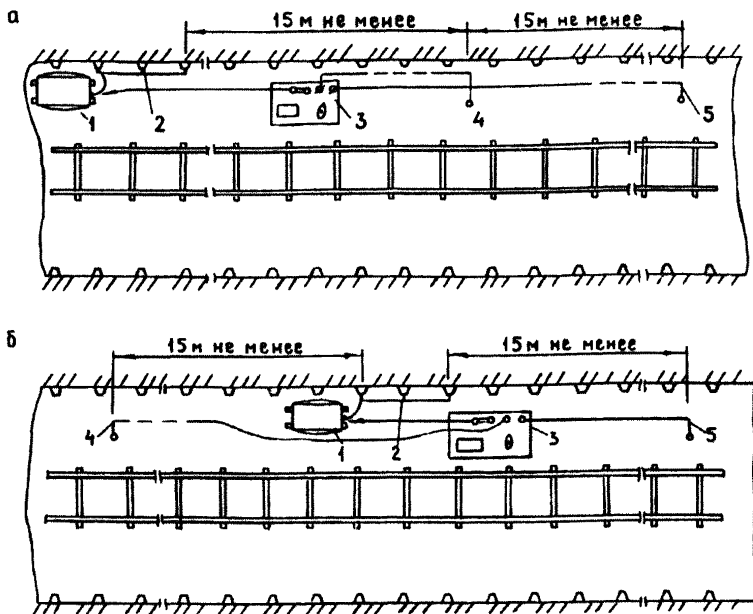 а
15 м не менее 15 м не менее
1 2 3 4 5
б
15 м не менее 15 м не менее
4 1 2 3 5